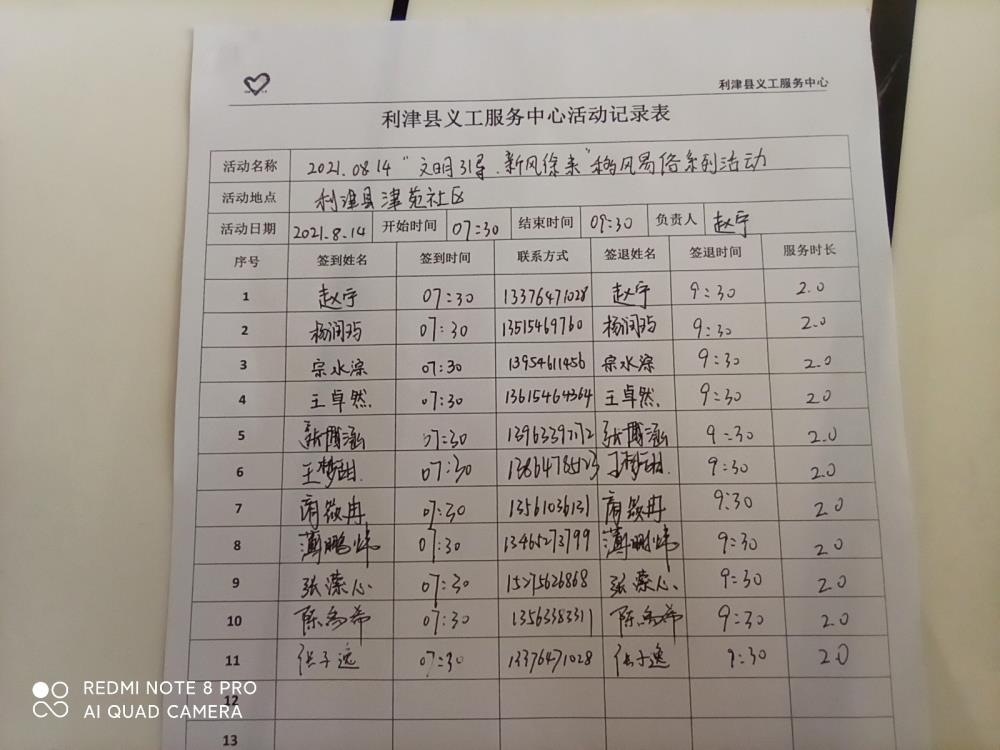 利津县义工服务中心
利津县义工服务中心活动记录表
活动名称 2021.08.14 "文明引导.新风徐来"移风易俗系列活动
活动地点 利津县津苑社区
活动日期 2021.8.14 开始时间 07:30 结束时间 09:30 负责人 赵宁
序号 签到姓名 签到时间 联系方式 签退姓名 签退时间 服务时长
1 赵宁 07:30 13376471028 赵宁 9:30 2.0
2 07:30 13515469760 9:30 2.0
3 宗水淙 07:30 13954611456 宗水淙 9:30 2.0
4 王卓然. 07:30 13615464364 王卓然. 9:30 2.0
5 张博涵 07:30 张博涵 9:30 2.0
6 王梦甜. 07:30 王梦甜. 9:30 2.0
7 07:30 13561036131 9:30 2.0
8 薄鹏炜 07:30 13465273799 薄鹏炜 9:30 2.0
9 张滦心 07:30 15275626868 张滦心 9:30 2.0
10 07:30 13563383311 9:30 2.0
11 07:30 13376471028 9:30 2.0
12
13
REDMI NOTE 8 PRO
AI QUAD CAMERA